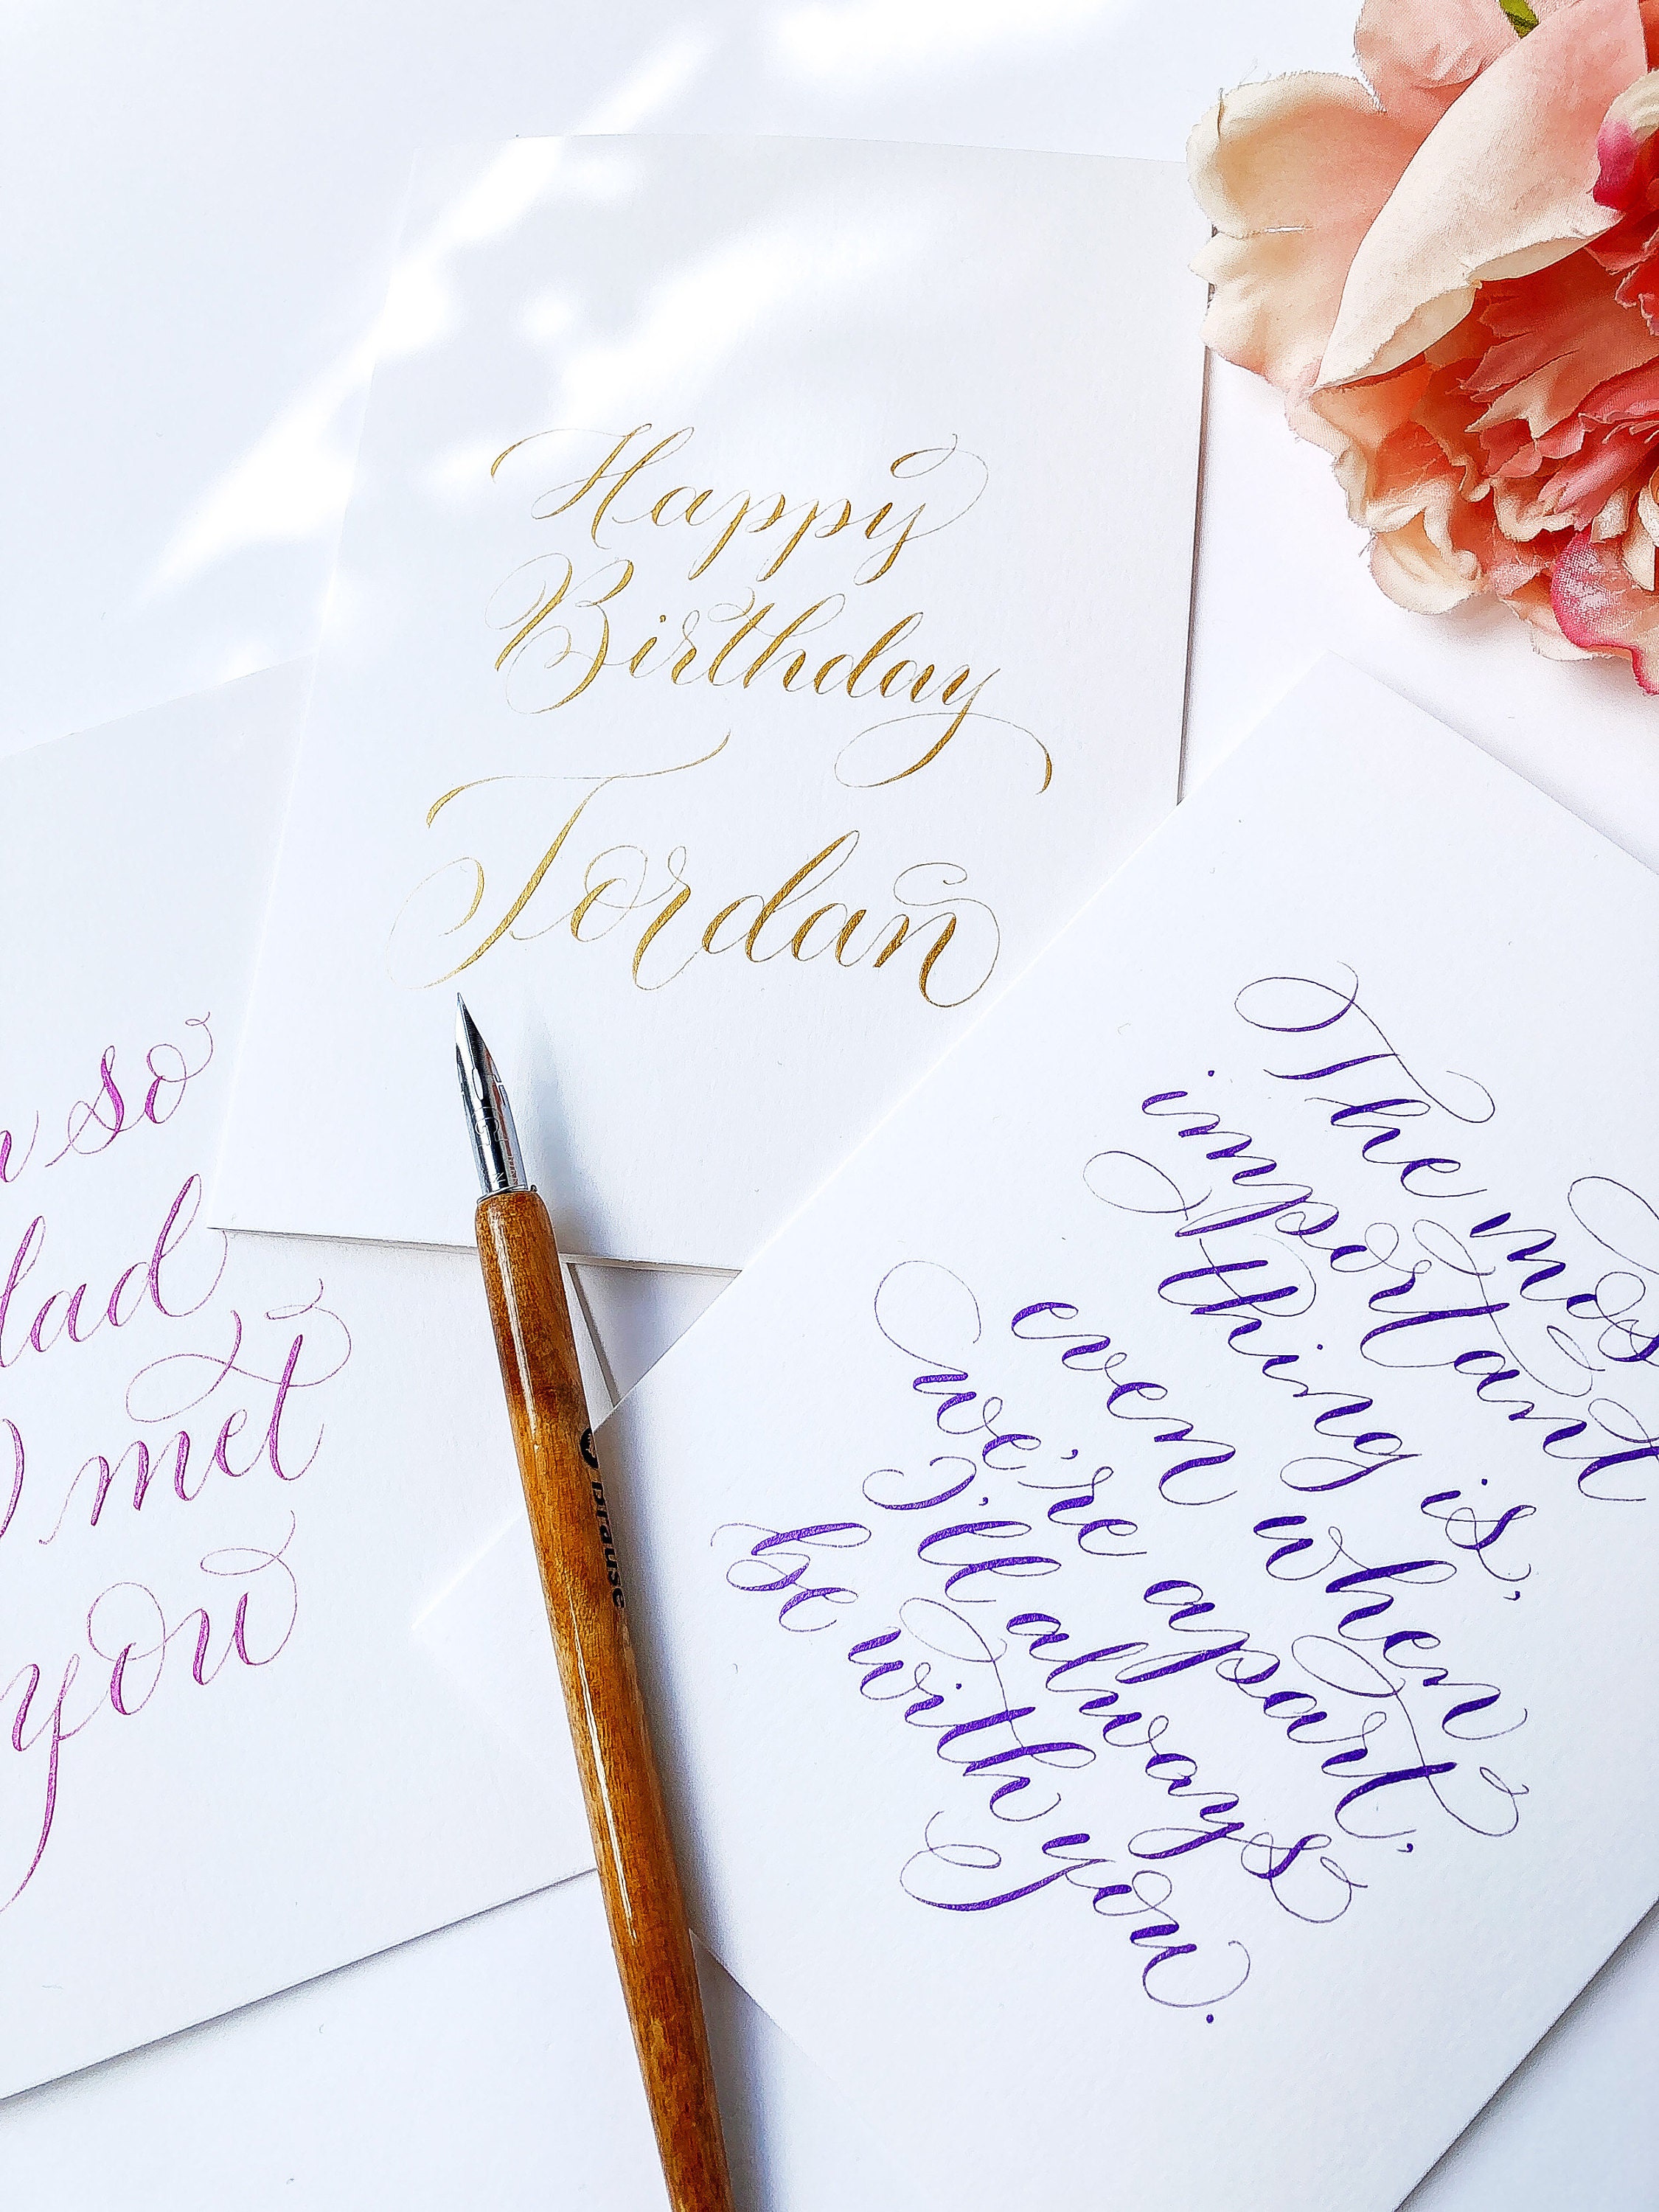 Happy
Birthday
Jordan
so
lad
met
you
The most
important
thing is,
even when
we're apart,
I'll always
be with you.
Brause